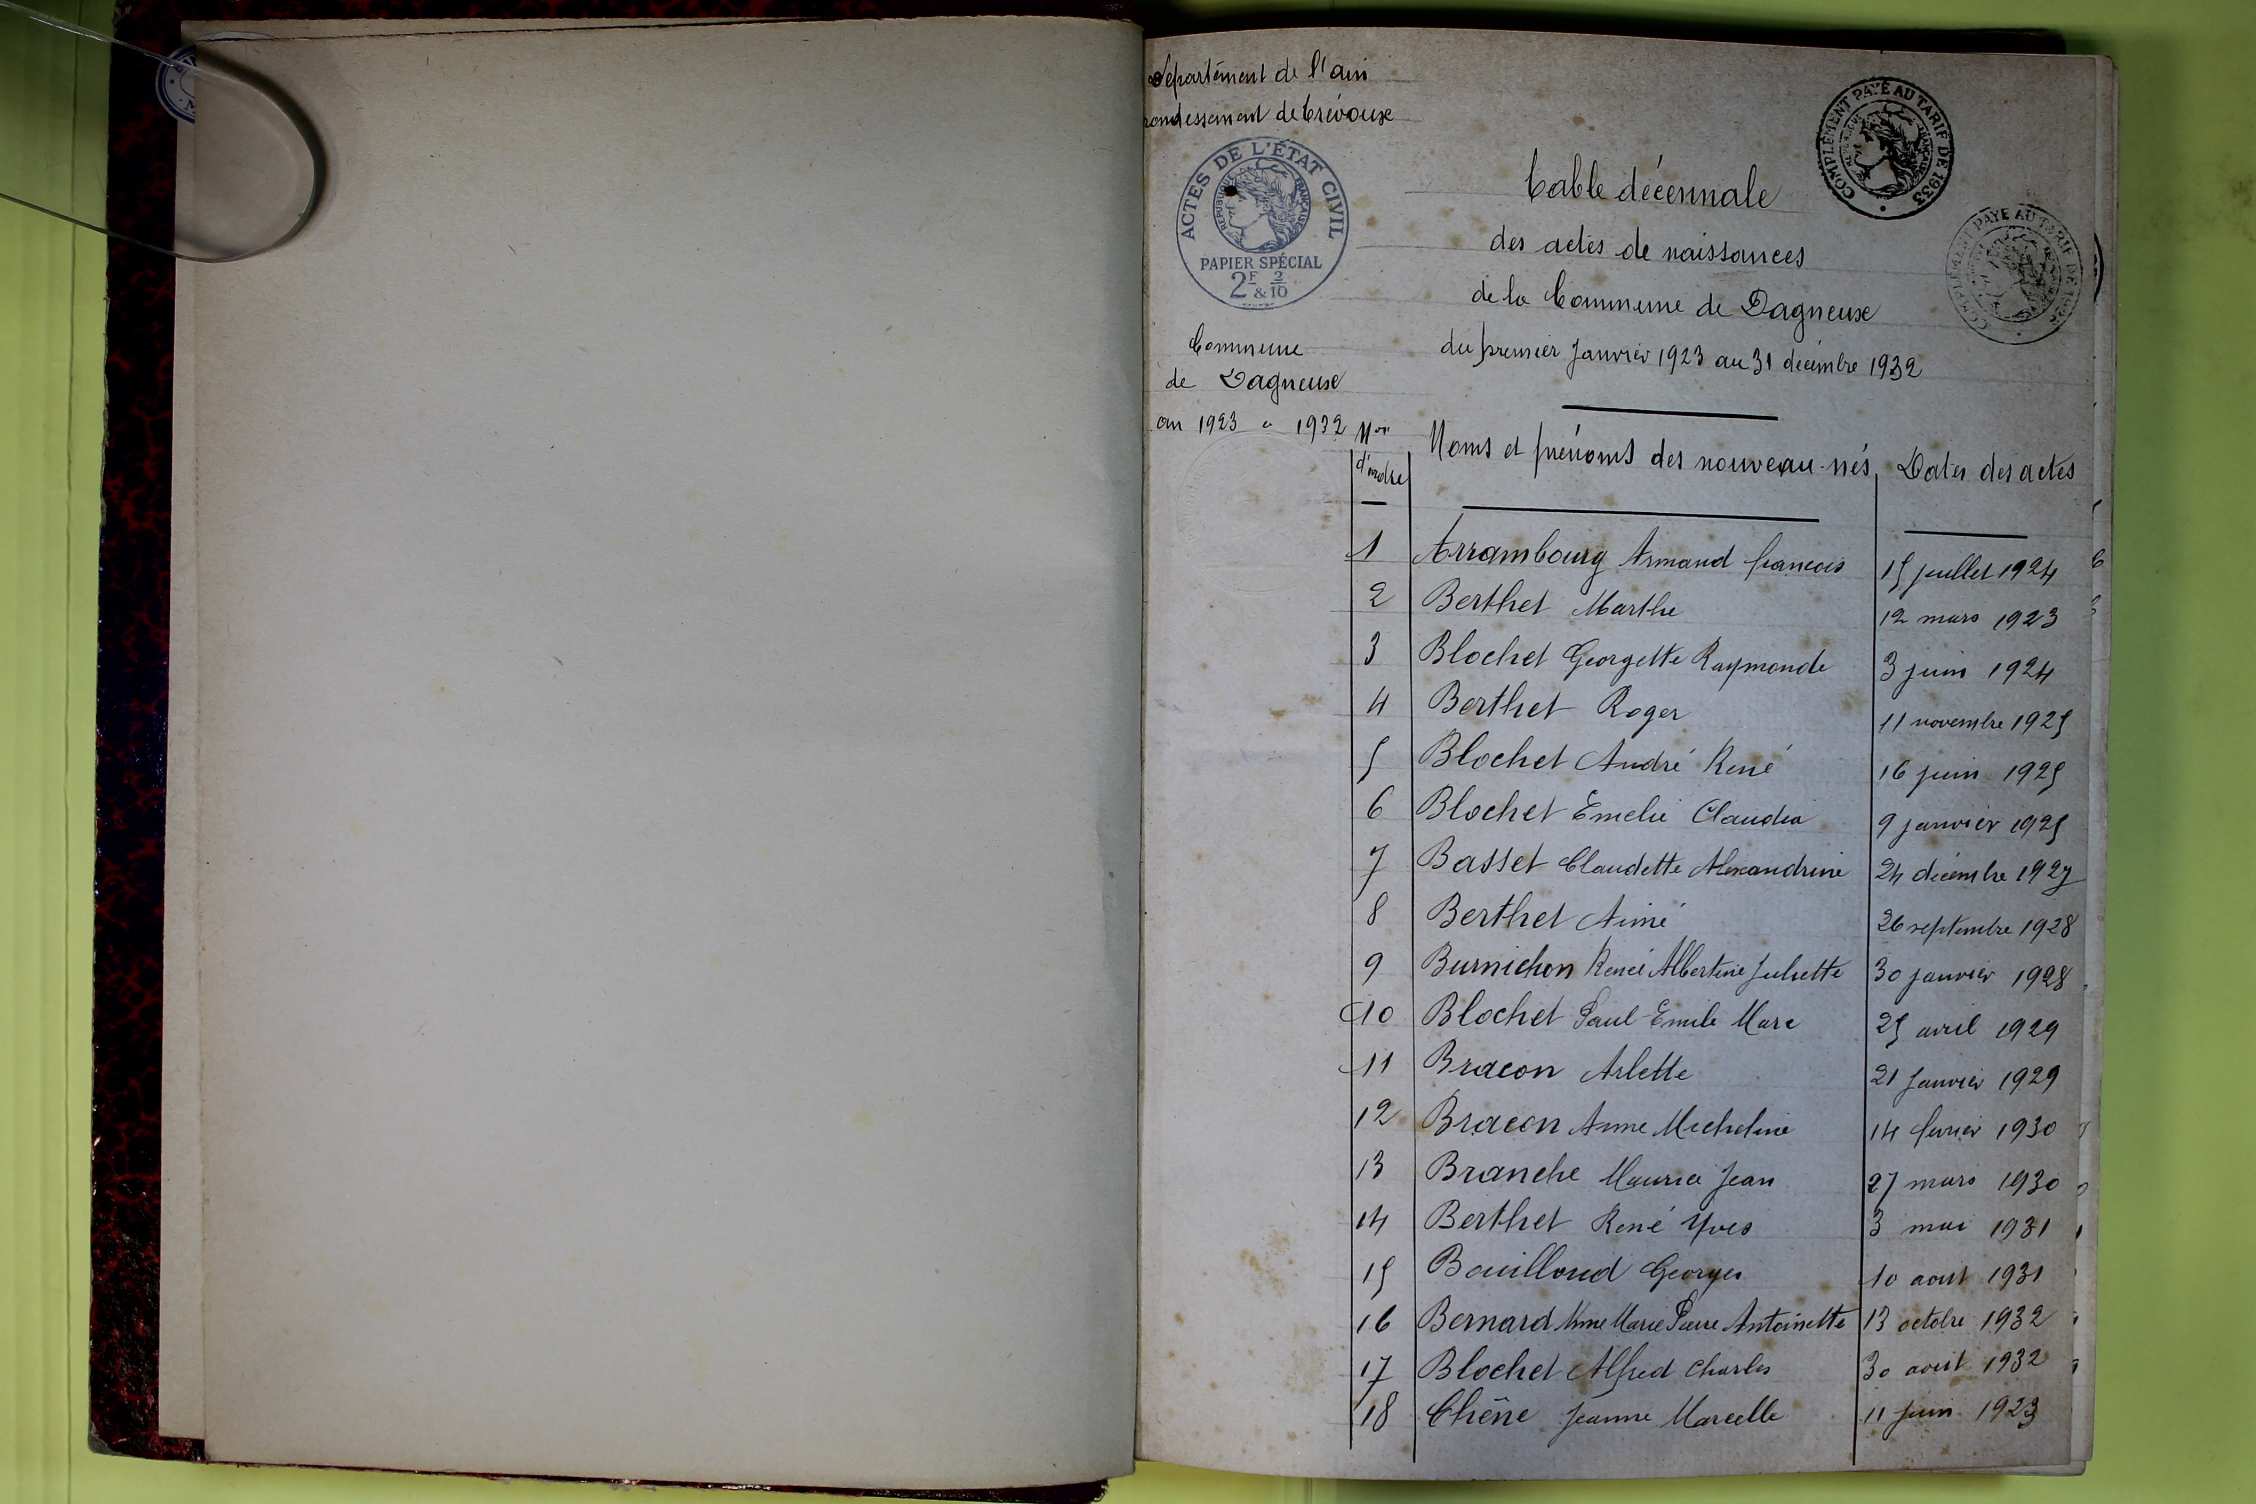 Département de l'ain
rondissement de Trévoux
ACTES DE L'ÉTAT CIVIL
RÉPUBLIQUE FRANÇAISE
PAPIER SPÉCIAL
2F & 2/10
COMPLÉMENT PAYÉ AU TARIF DE 1933
COMPLÉMENT PAYÉ AU TARIF DE 1933
Table décennale
des actes de naissances
de la Commune de Dagneux
du premier Janvier 1923 au 31 décembre 1932
Commune
de Dagneux
an 1923 à 1932
Nos d'ordre Noms et prénoms des nouveau-nés Dates des actes
1 Arrambourg Armand françois 15 juillet 1924
2 Berthet Marthe 12 mars 1923
3 Blochet Georgette Raymonde 3 juin 1924
4 Berthet Roger 11 novembre 1925
5 Blochet André René 16 juin 1925
6 Blochet Emelie Claudia 9 janvier 1925
7 Basset Claudette Alexandrine 24 décembre 1927
8 Berthet Aimé 26 septembre 1928
9 Burnichon Renée Albertine Juliette 30 janvier 1928
10 Blochet Paul Emile Marc 25 avril 1929
11 Bracon Arlette 21 Janvier 1929
12 Bracon Anne Micheline 14 fevrier 1930
13 Branche Maurice Jean 27 mars 1930
14 Berthet René Yves 3 mai 1931
15 Bouilloud Georges 10 aout 1931
16 Bernard Marie Pierre Antoinette 13 octobre 1932
17 Blochet Alfred Charles 30 aout 1932
18 Chêne Jeanne Marcelle 11 Juin 1923